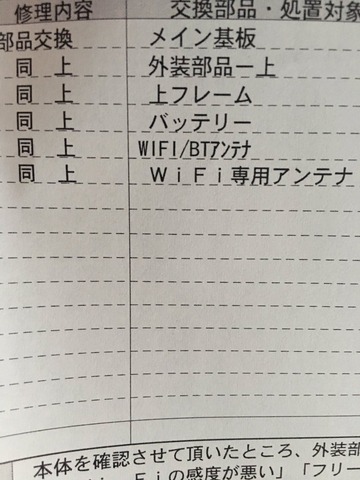 修理内容 交換部品・処置対象
部品交換 メイン基板
同 上 外装部品一上
同 上 上フレーム
同 上 バッテリー
同 上 WIFI/BTｱﾝﾃﾅ
同 上 ＷｉＦｉ専用アンテナ
本体を確認させて頂いたところ、外装部
Ｆｉの感度が悪い」「フリー